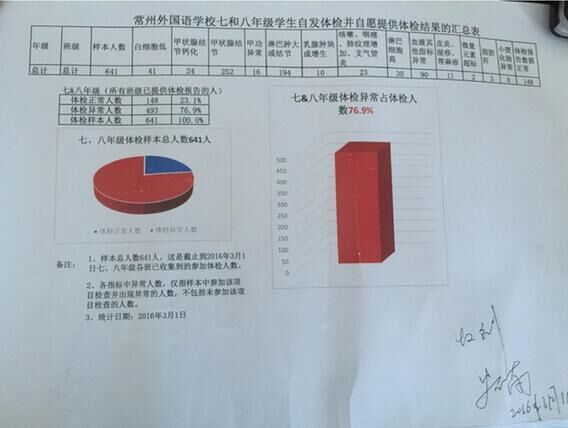 常州外国语学校七和八年级学生自发体检并自愿提供体检结果的汇总表
年级 班级 样本人数 白细胞低 甲状腺结节钙化 甲状腺结节 甲功异常 淋巴肿大或结节 乳腺肿块或增生 咳嗽、咽痛、肺纹理增加、支气管炎 淋巴细胞高 血液其他指标异常 皮炎、湿疹、荨麻疹 微量元素超标 脂肪肝 小便化验异常 体检报告数据正常
总计 总计 641 41 24 252 16 194 10 23 30 90 11 2 3 8 148
七&八年级（所有班级已提供体检报告的人）
体检正常人数 148 23.1%
体检异常人数 493 76.9%
体检样本人数 641 100.0%
七、八年级体检样本总人数641人
体检正常人数 体检异常人数
七&八年级体检异常占体检人
数76.9%
500
450
400
350
300
250
200
150
100
50
0
备注：
1、样本总人数641人，这是截止到2016年3月1
日七、八年级各班已收集到的参加体检人数。
2、各指标中异常人数，仅指样本中参加该项
目检查并出现异常的人数，不包括未参加该项
目检查的人数。
3、统计日期：2016年3月1日